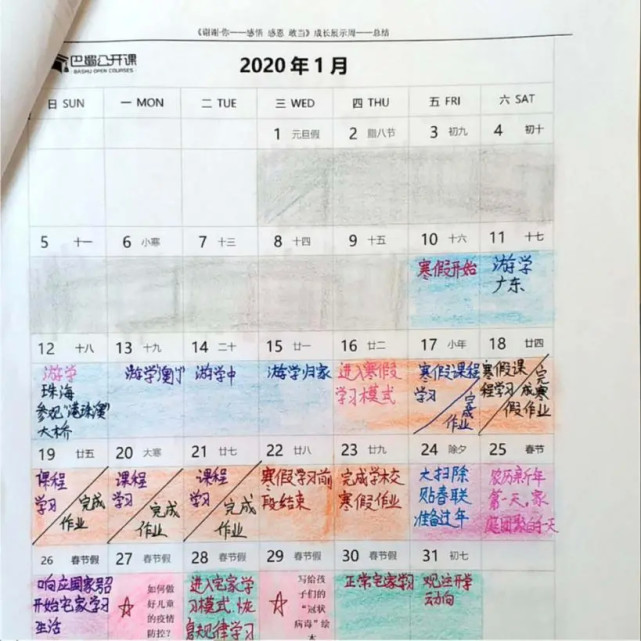 《谢谢·你——感悟 感恩 敢当》成长展示周——总结
巴蜀公开课
BASHU OPEN COURSES
2020年1月
日 SUN 一 MON 二 TUE 三 WED 四 THU 五 FRI 六 SAT
1 元旦假 2 腊八节 3 初九 4 初十
5 十一 6 小寒 7 十三 8 十四 9 十五 10 十六 11 十七
寒假开始
游学
广东
12 十八 13 十九 14 二十 15 廿一 16 廿二 17 小年 18 廿四
游学
珠海
参观"港珠澳"
大桥
游学澳门
游学中
游学归家
进入寒假
学习模式
寒假课程
学习
完成
作业
寒假课
程学习
完成寒
假作业
19 廿五 20 大寒 21 廿七 22 廿八 23 廿九 24 除夕 25 春节
课程
学习
完成
作业
课程
学习
完成
作业
课程
学习
完成
作业
寒假学习前
段结束
完成学校
寒假作业
大扫除
贴春联
准备过年
农历新年
第一天,家
庭团聚的一天
26 春节假 27 春节假 28 春节假 29 春节假 30 春节假 31 初七
响应国家号召
开始宅家学习
生活
如何做
好儿童
的疫情
防控?
进入宅家学
习模式,恢
复规律学习
写给孩
子们的
"冠状
病毒"绘
本
正常宅家学习
观注开学
动向